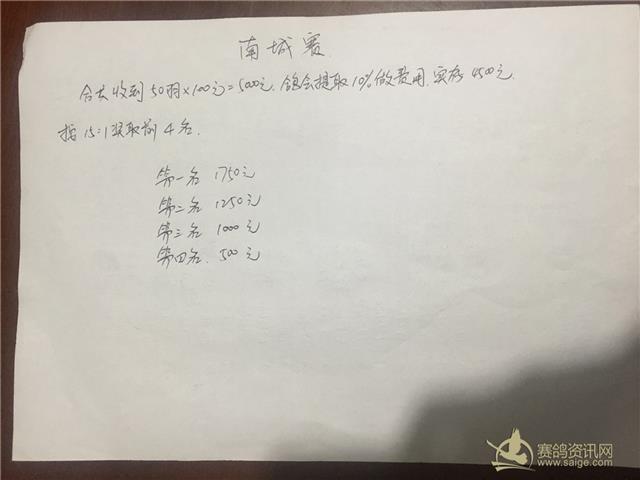 南城赛
合共收到50羽×100元=5000元.鸽会提取10%做费用.实存4500元.
按15:1奖取前4名.
第一名 1750元
第二名 1250元
第三名 1000元
第四名. 500元
赛鸽资讯网
www.saige.com